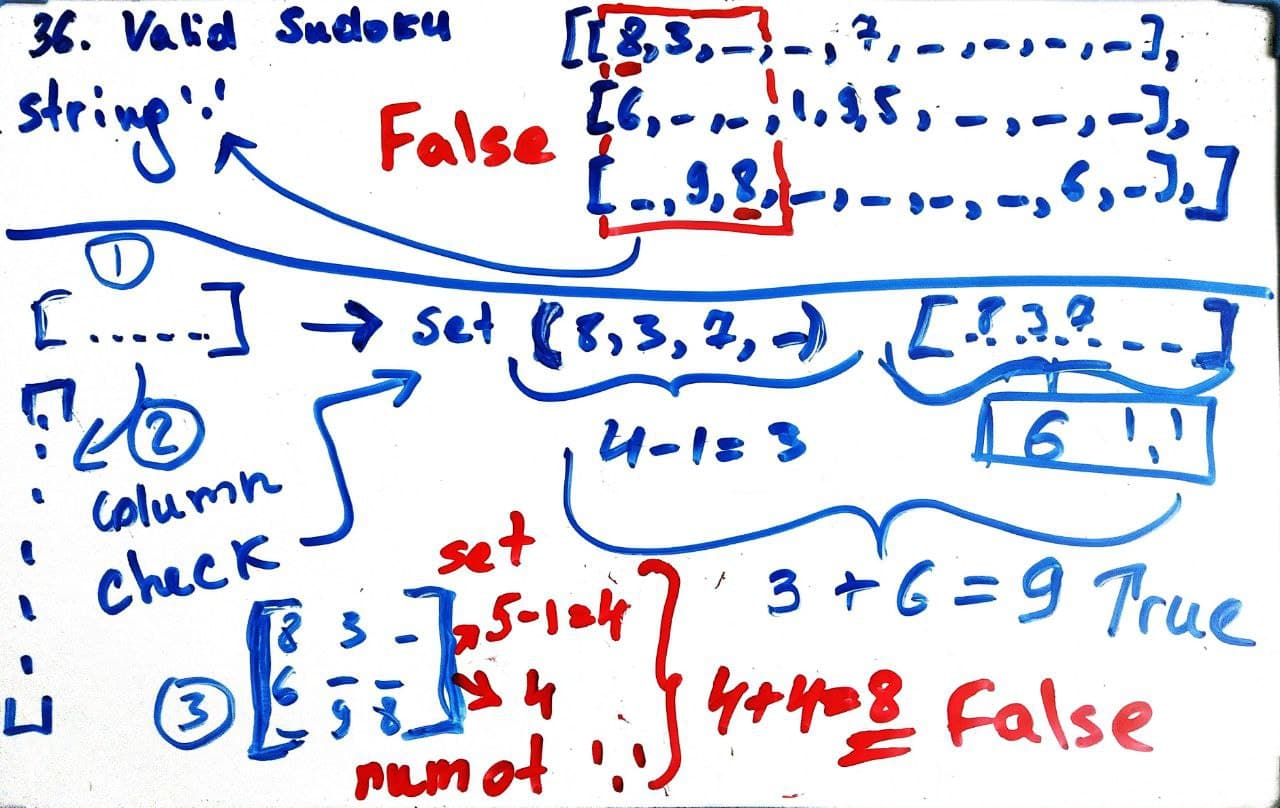 36. Valid Sudoku
string '.'
False
[[8,3,_,_,7,_,_,_,_],
[6,_,_,1,9,5,_,_,_],
[_,9,8,_,_,_,_,6,_],]
①
[......] → set (8,3,7,-) [.8.3.7.....]
4-1=3
6 '.'
②
column
check
3+6=9 True
③
8 3 -
6 - -
- 9 8
set
5-1=4
4
num of '.'
4+4=8 False